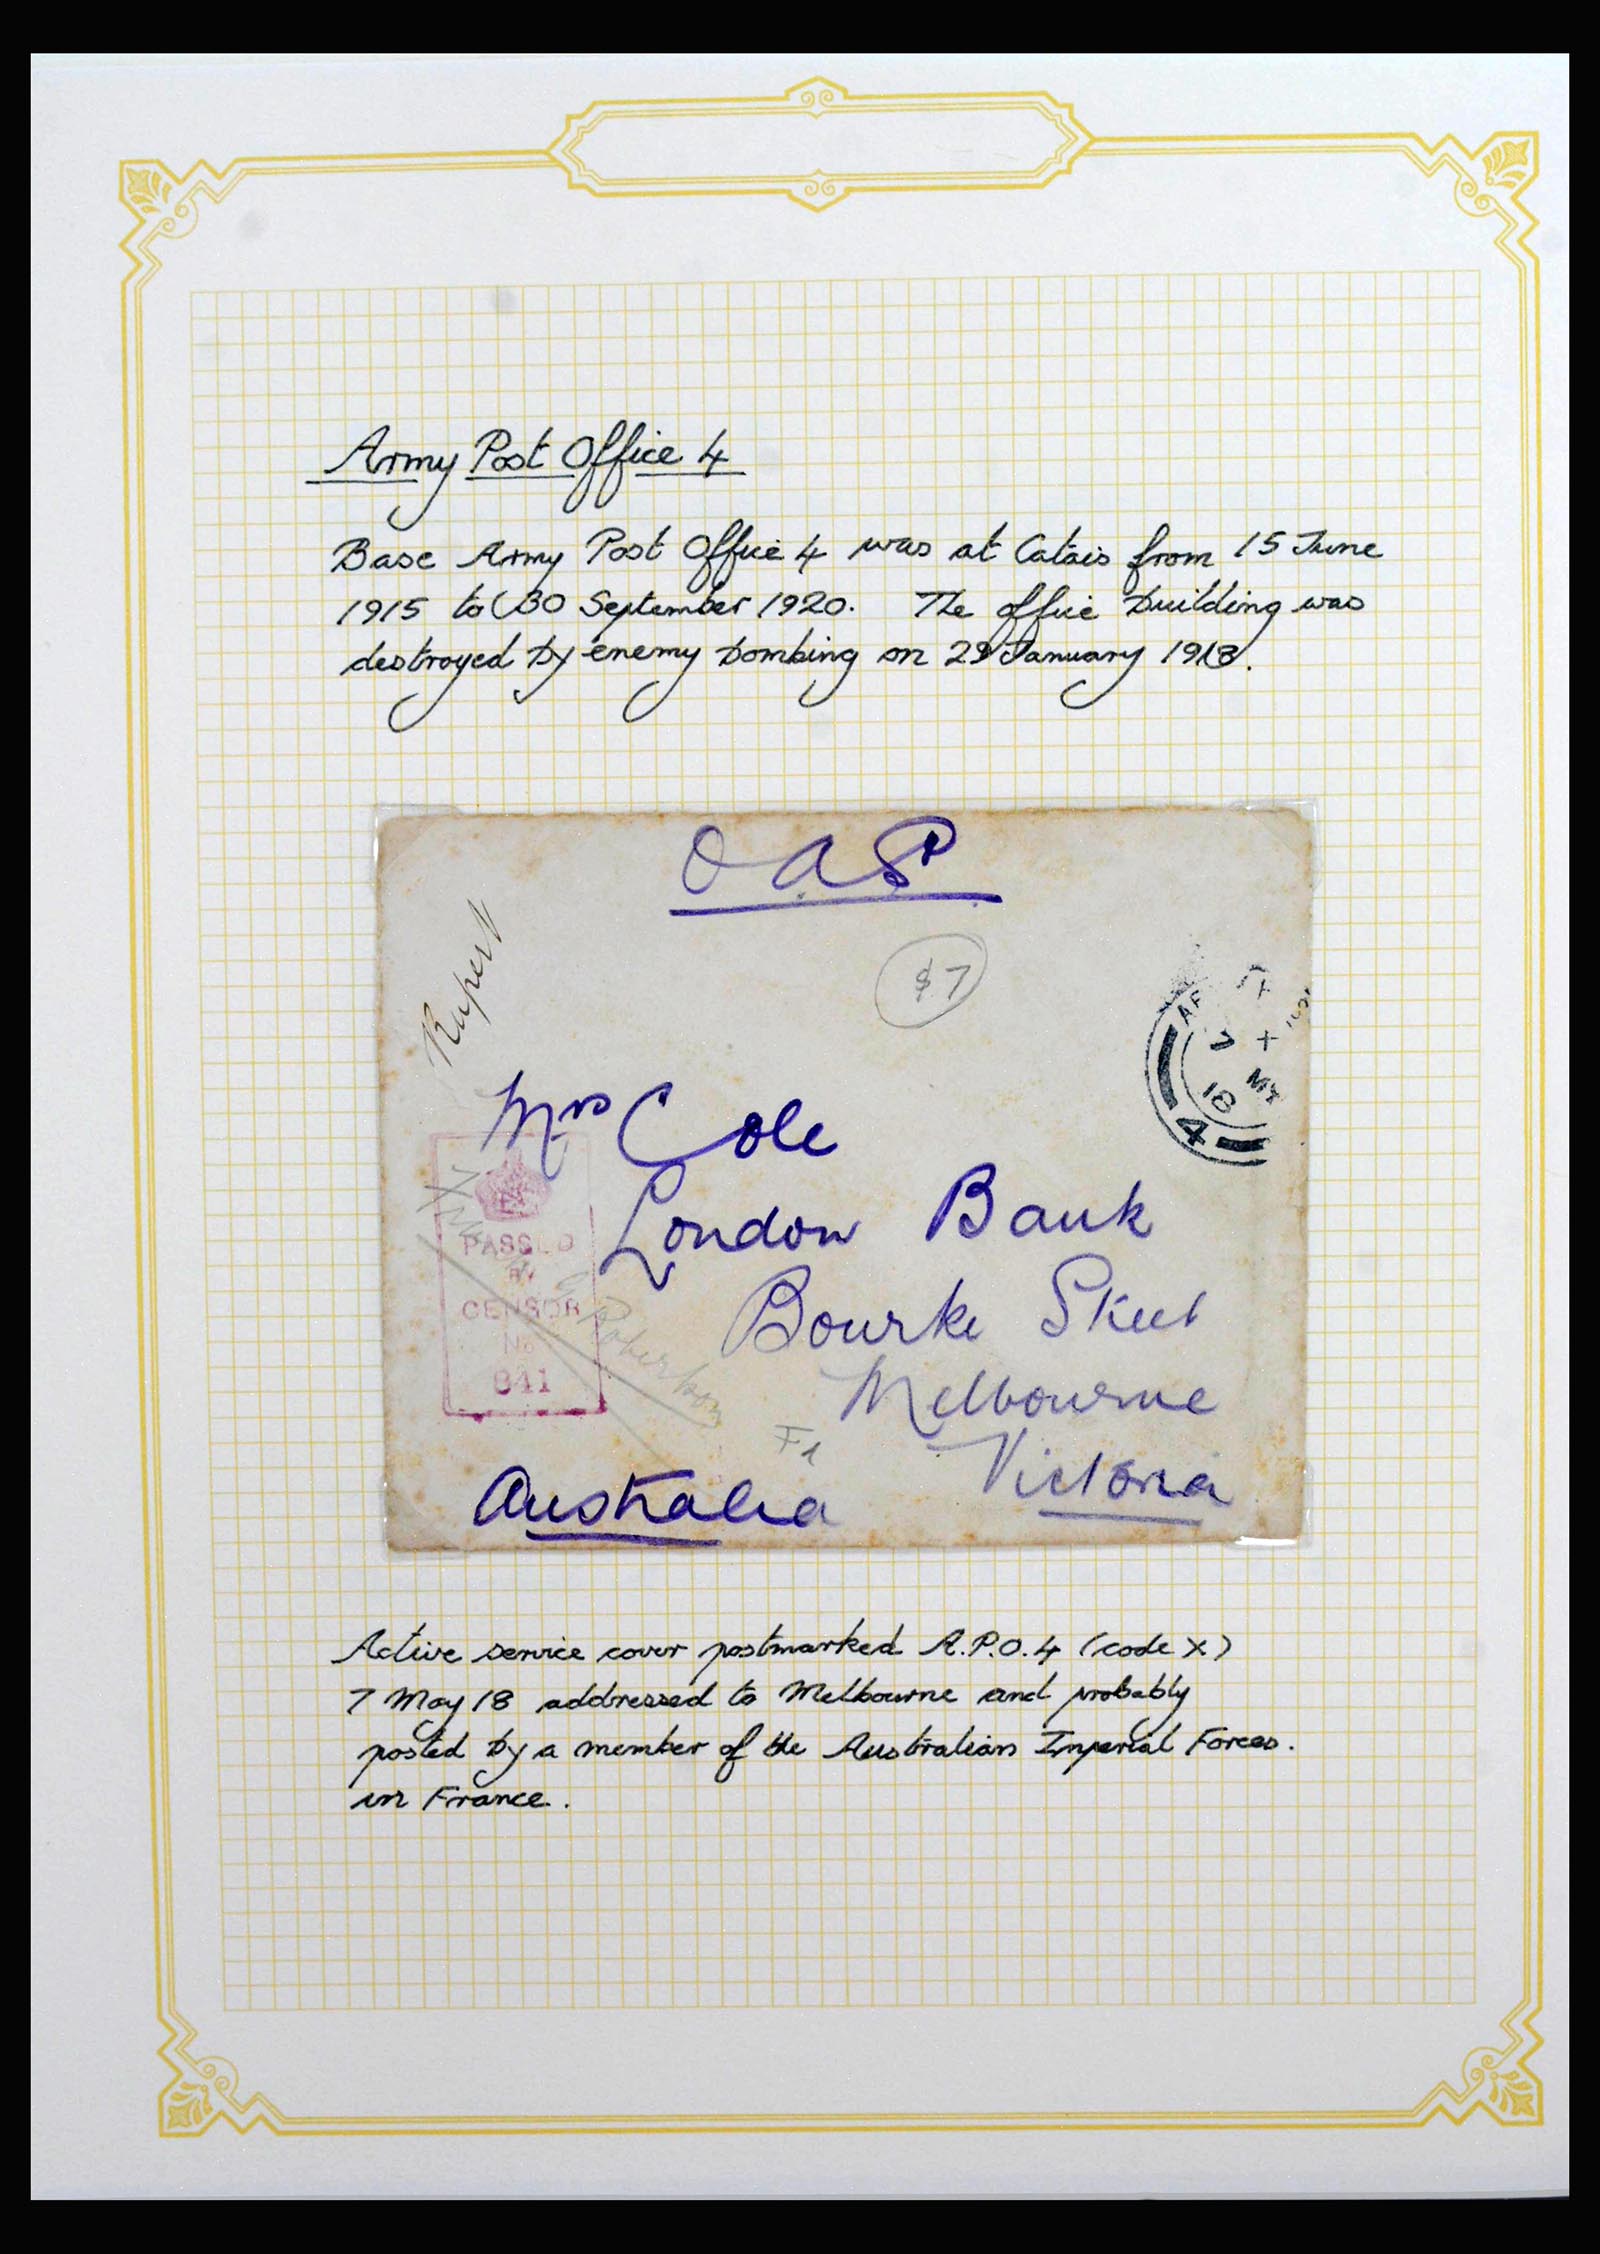 Army Post Office 4
Base Army Post Office 4 was at Calais from 15 June
1915 to 30 September 1920. The office building was
destroyed by enemy bombing on 29 January 1918.
O A S
Rupert
$7
X
7 MY
18
4
Mrs Cole
London Bank
Bourke Street
Melbourne
Victoria
Australia
PASSED
BY
CENSOR
No
841
Robertson
Active service cover postmarked A.P.O. 4 (code X)
7 May 18 addressed to Melbourne and probably
posted by a member of the Australian Imperial Forces.
in France.